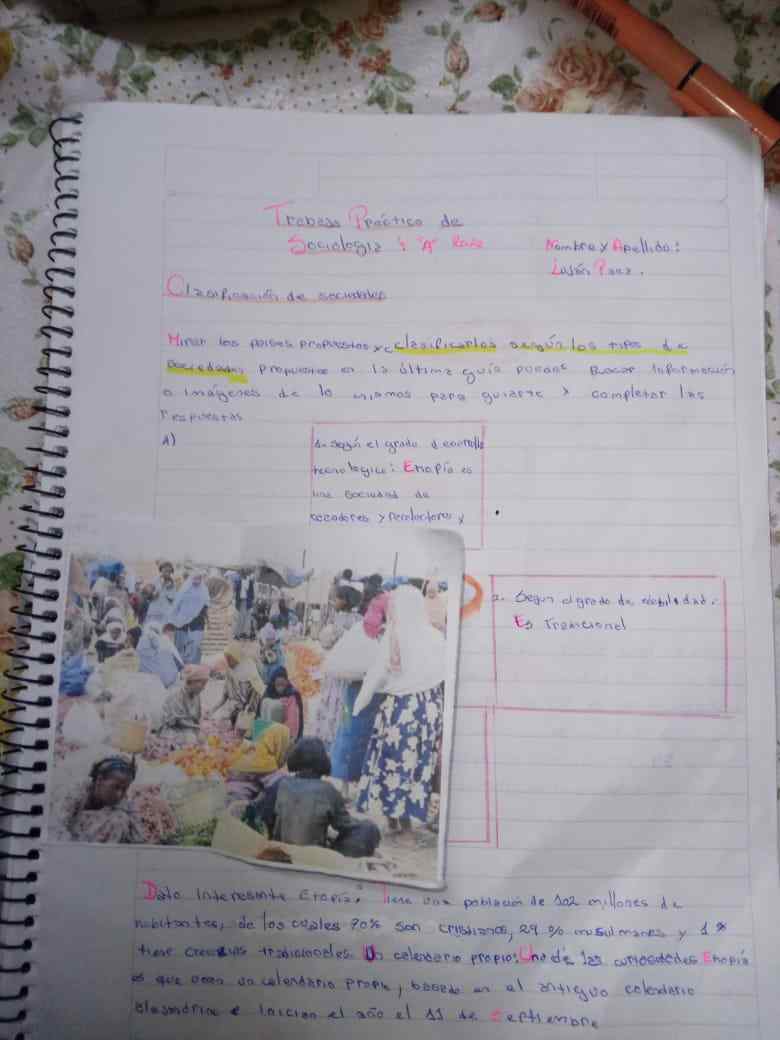 Trabajo Práctico de
Sociología 4 "A"
Nombre y Apellido:
Luján Paez.
Clasificación de sociedades
Mirar los países propuestos y clasificarlos según los tipos de
sociedades propuestos en la última guía puedes buscar información
o imágenes de lo mismos para guiarte y completar las
respuestas
1- según el grado d
tecnologico: Etiopía es
una sociedad de
cazadores y recolectores y
2- Segun el grado de movilidad:
Es Tradicional
Dato interesante Etiopía: Tiene una población de 102 millones de
habitantes, de los cuales 70% son cristianos, 29% musulmanes y 1%
tiene creencias tradicionales Un calendario propio: Una de las curiosidades Etiopía
es que usan un calendario propio, basado en el antiguo calendario
alejandrino e inician el año el 11 de septiembre